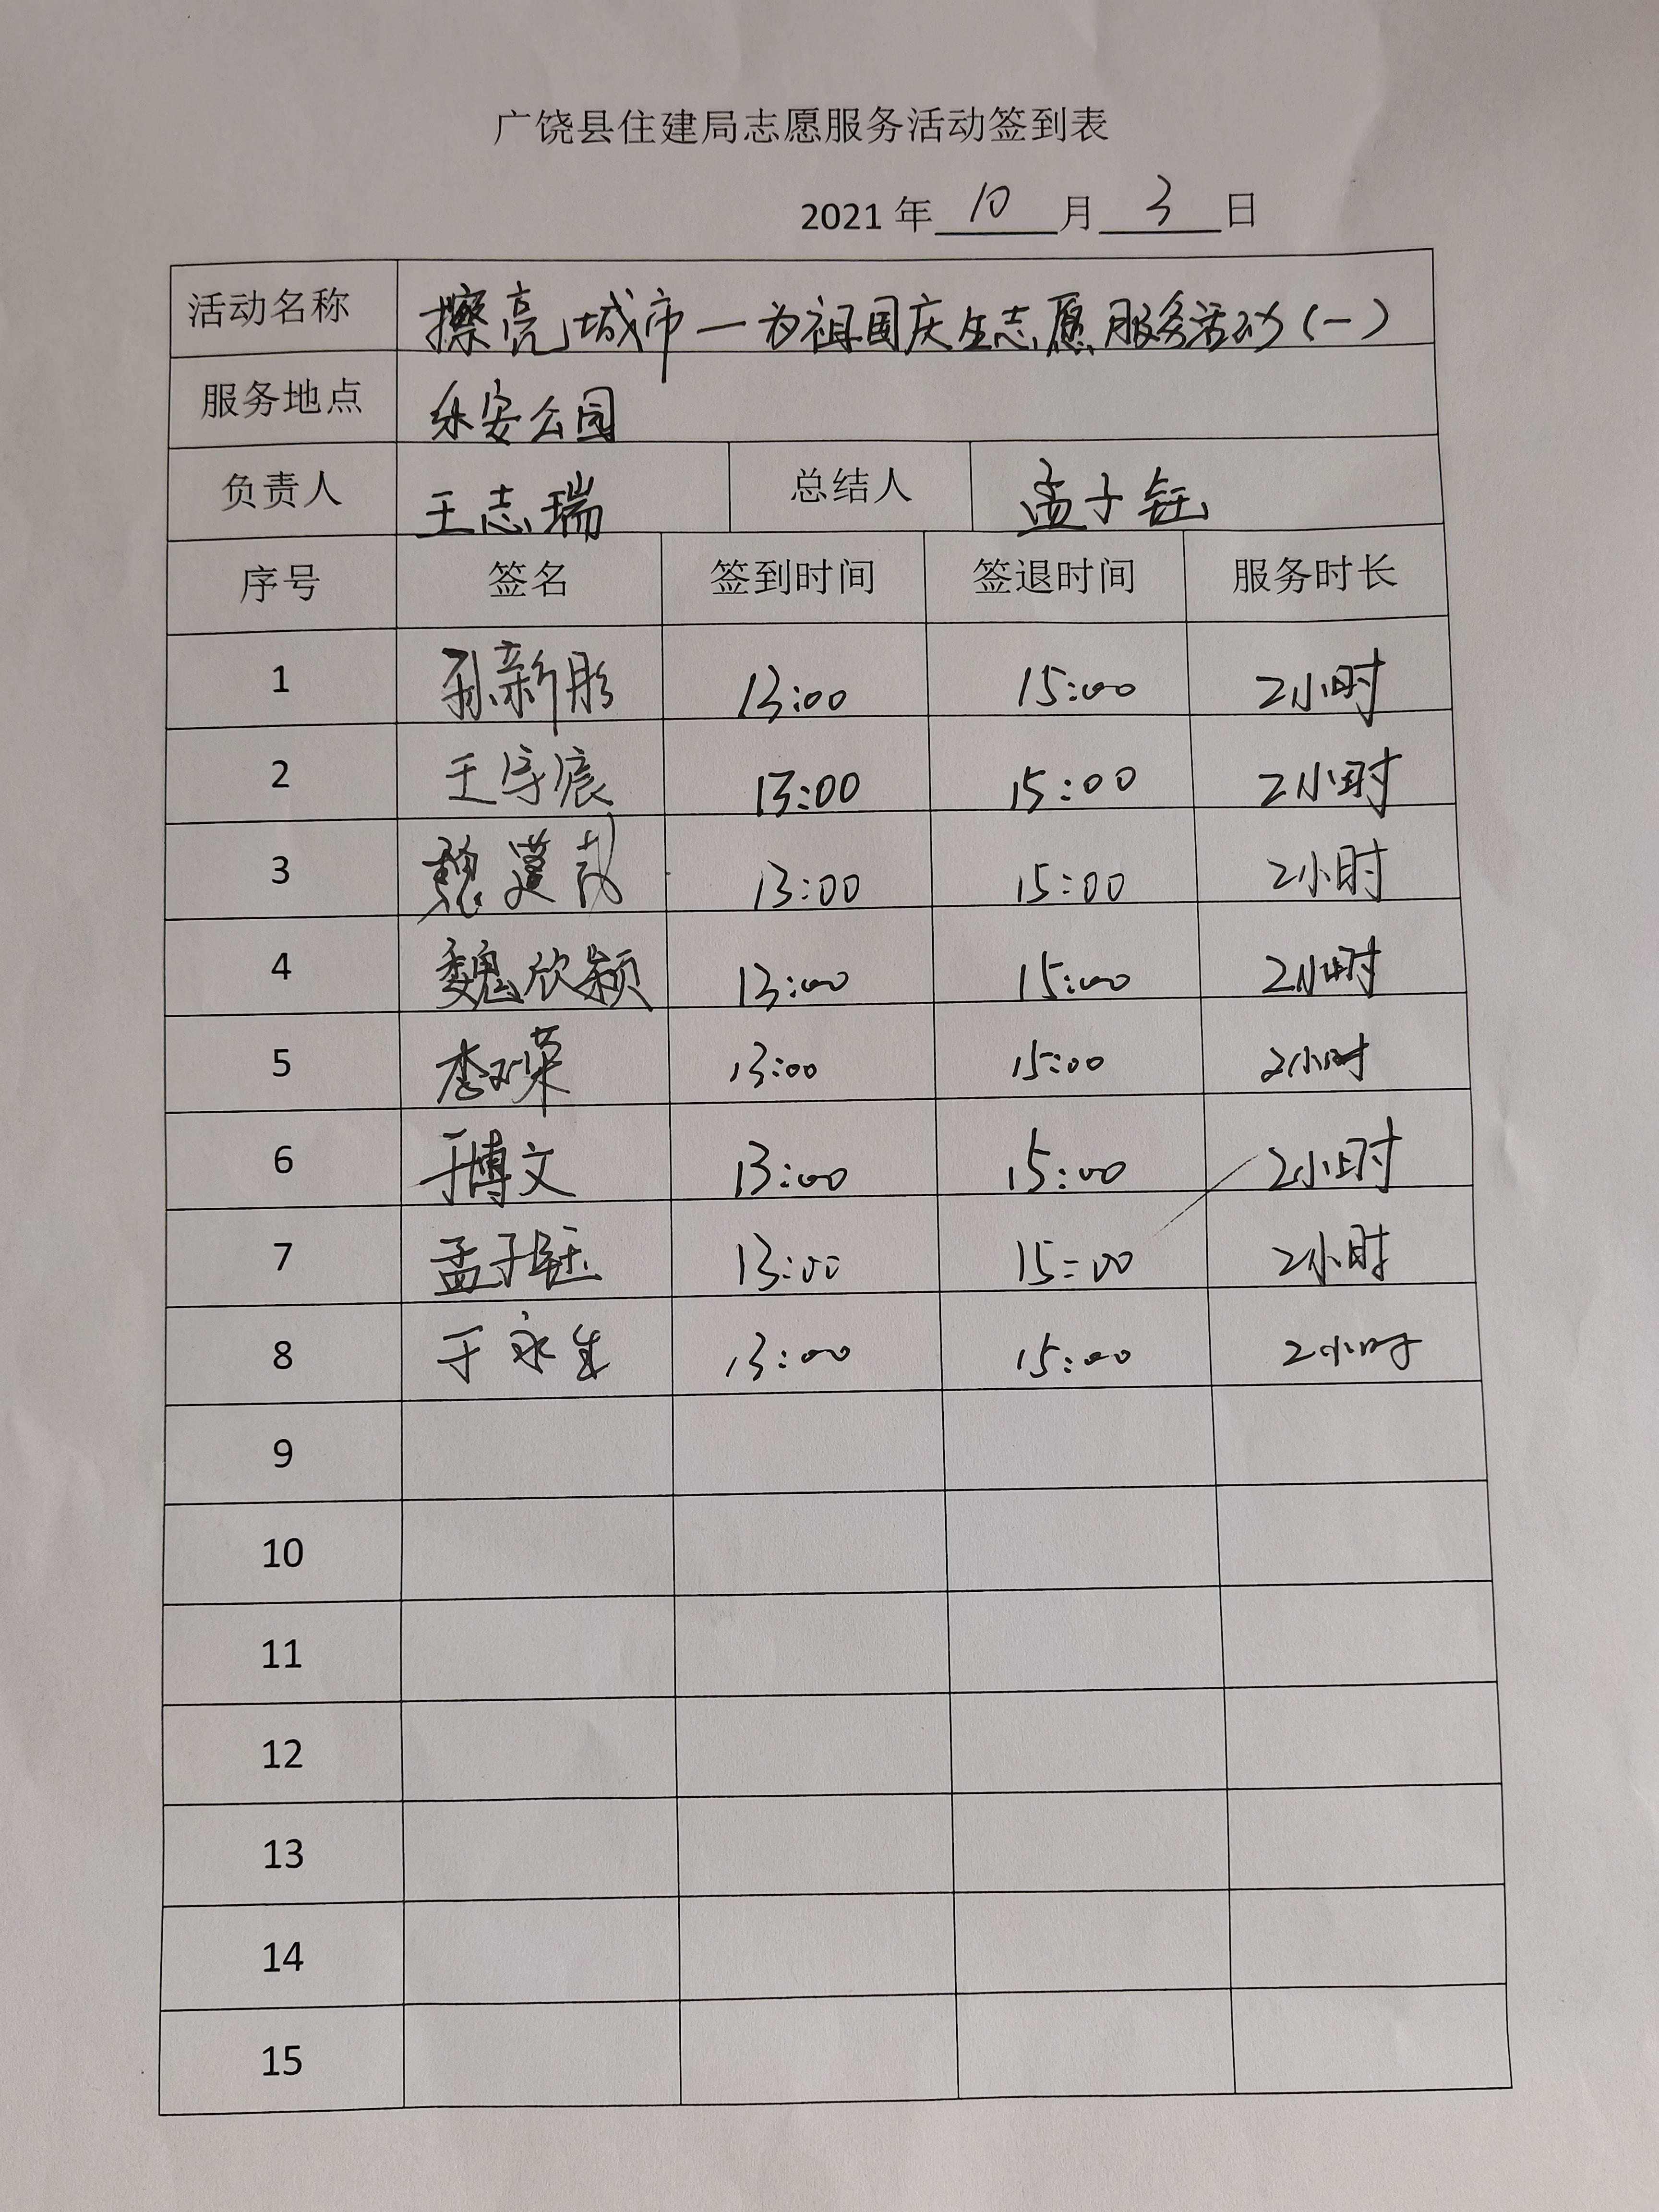 广饶县住建局志愿服务活动签到表
2021年 10 月 3 日
活动名称 擦亮城市—为祖国庆生志愿服务活动(一)
服务地点 永安公园
负责人 王志瑞 总结人 孟子钰
序号 签名 签到时间 签退时间 服务时长
1 孙新彤 13:00 15:00 2小时
2 王宇宸 13:00 15:00 2小时
3 魏 13:00 15:00 2小时
4 魏欣颖 13:00 15:00 2小时
5 李双荣 13:00 15:00 2小时
6 于博文 13:00 15:00 2小时
7 孟子钰 13:00 15:00 2小时
8 于永生 13:00 15:00 2小时
9
10
11
12
13
14
15